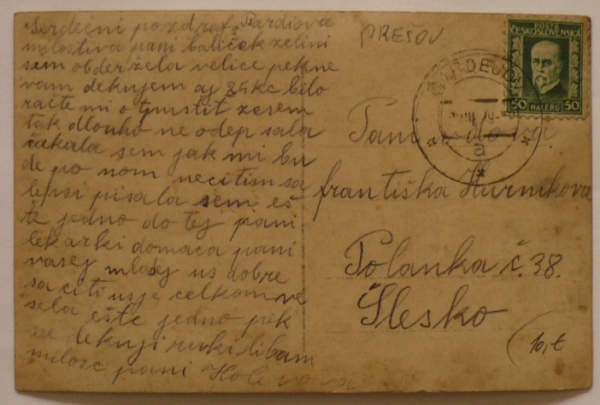 Serdečni pozdraf z Bardiova
milostiva pani baliček zelini
sem obderžela velice pekne
vam dekujem aj 85 kč bilo
račte mi o
tak dlouho ne odep sala
čekala sem jak mi bu
de po nom necitim sa
lepsi pisala sem eš
te jedno do tej pani
lekarki domaca pani
vasej mladej us dobre
sa citi us je celkom ve
sela ešte jedno pek
ne dekuji ruki libam
milosc pani
PREŠOV
POSTA
ČESKOSLOVENSKÁ
50 HALÉŘŮ 50
Pani
františka Kurnikova
Polanka č. 38.
Šlesko
10,€